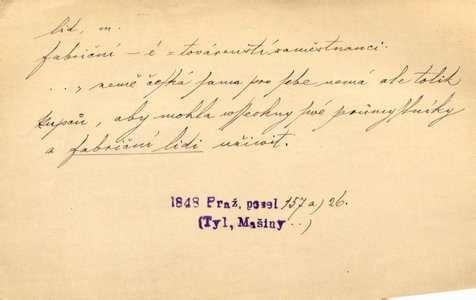 lid, m.
fabriční – é = továrenští zaměstnanci.
.., země česká sama pro sebe nemá ale tolik
kupců, aby mohla všechny své průmyslníky
a fabriční lidi uživit.
1848 Praž. posel 157a) 26.
(Tyl, Mašiny ..)